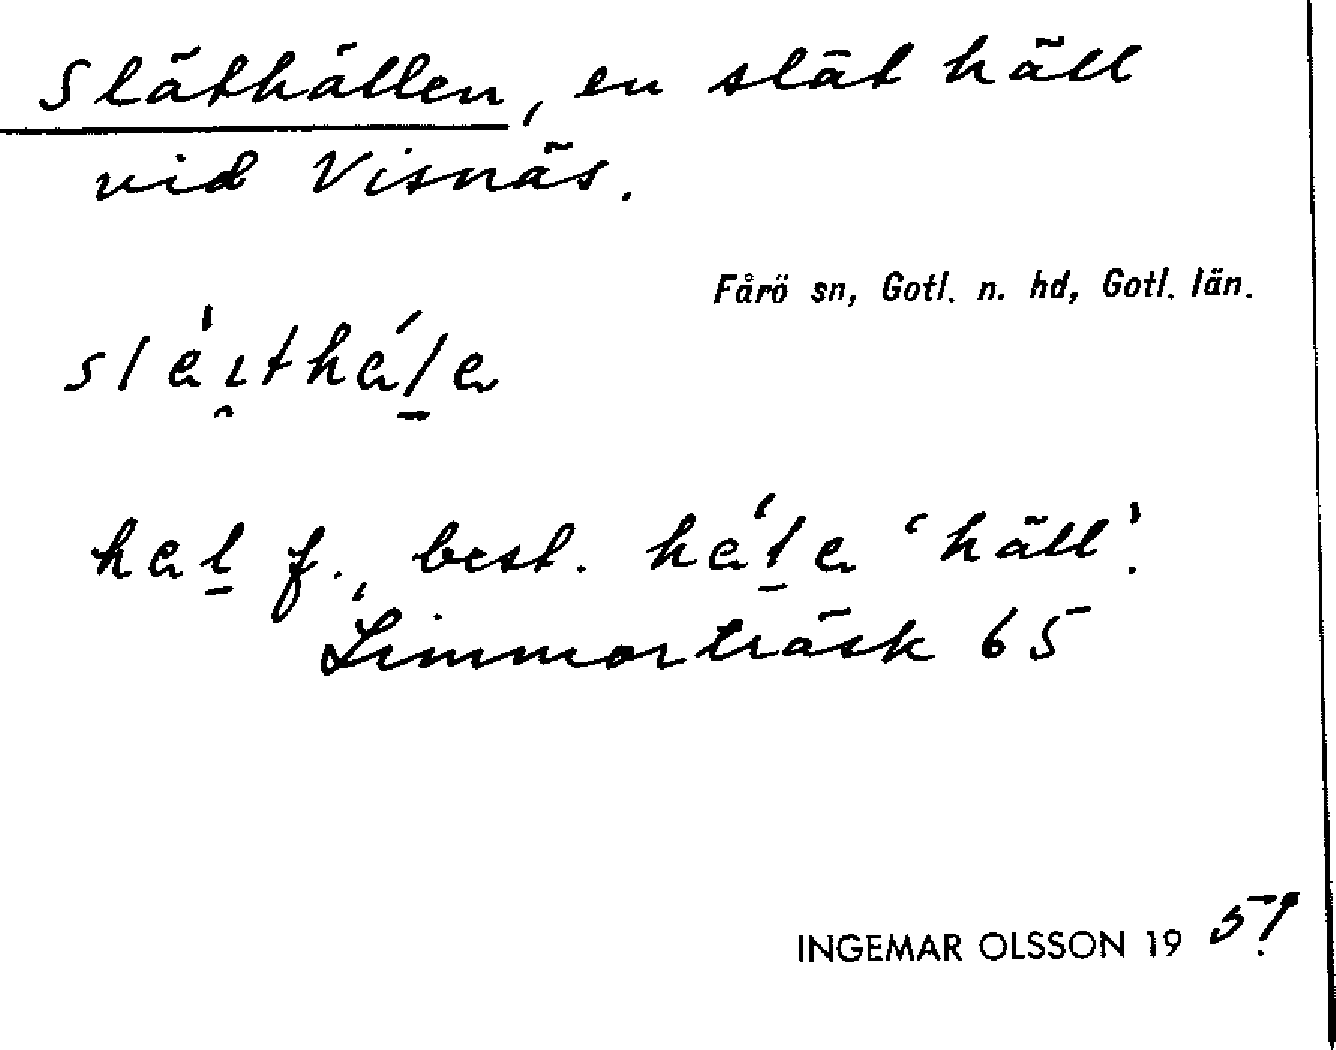 Släthällen, en slät häll
vid Visnäs.
Fårö sn, Gotl. n. hd, Gotl. län.
hal̲ f., best. há̲la 'häll'.
Limmorträsk 65
INGEMAR OLSSON 19